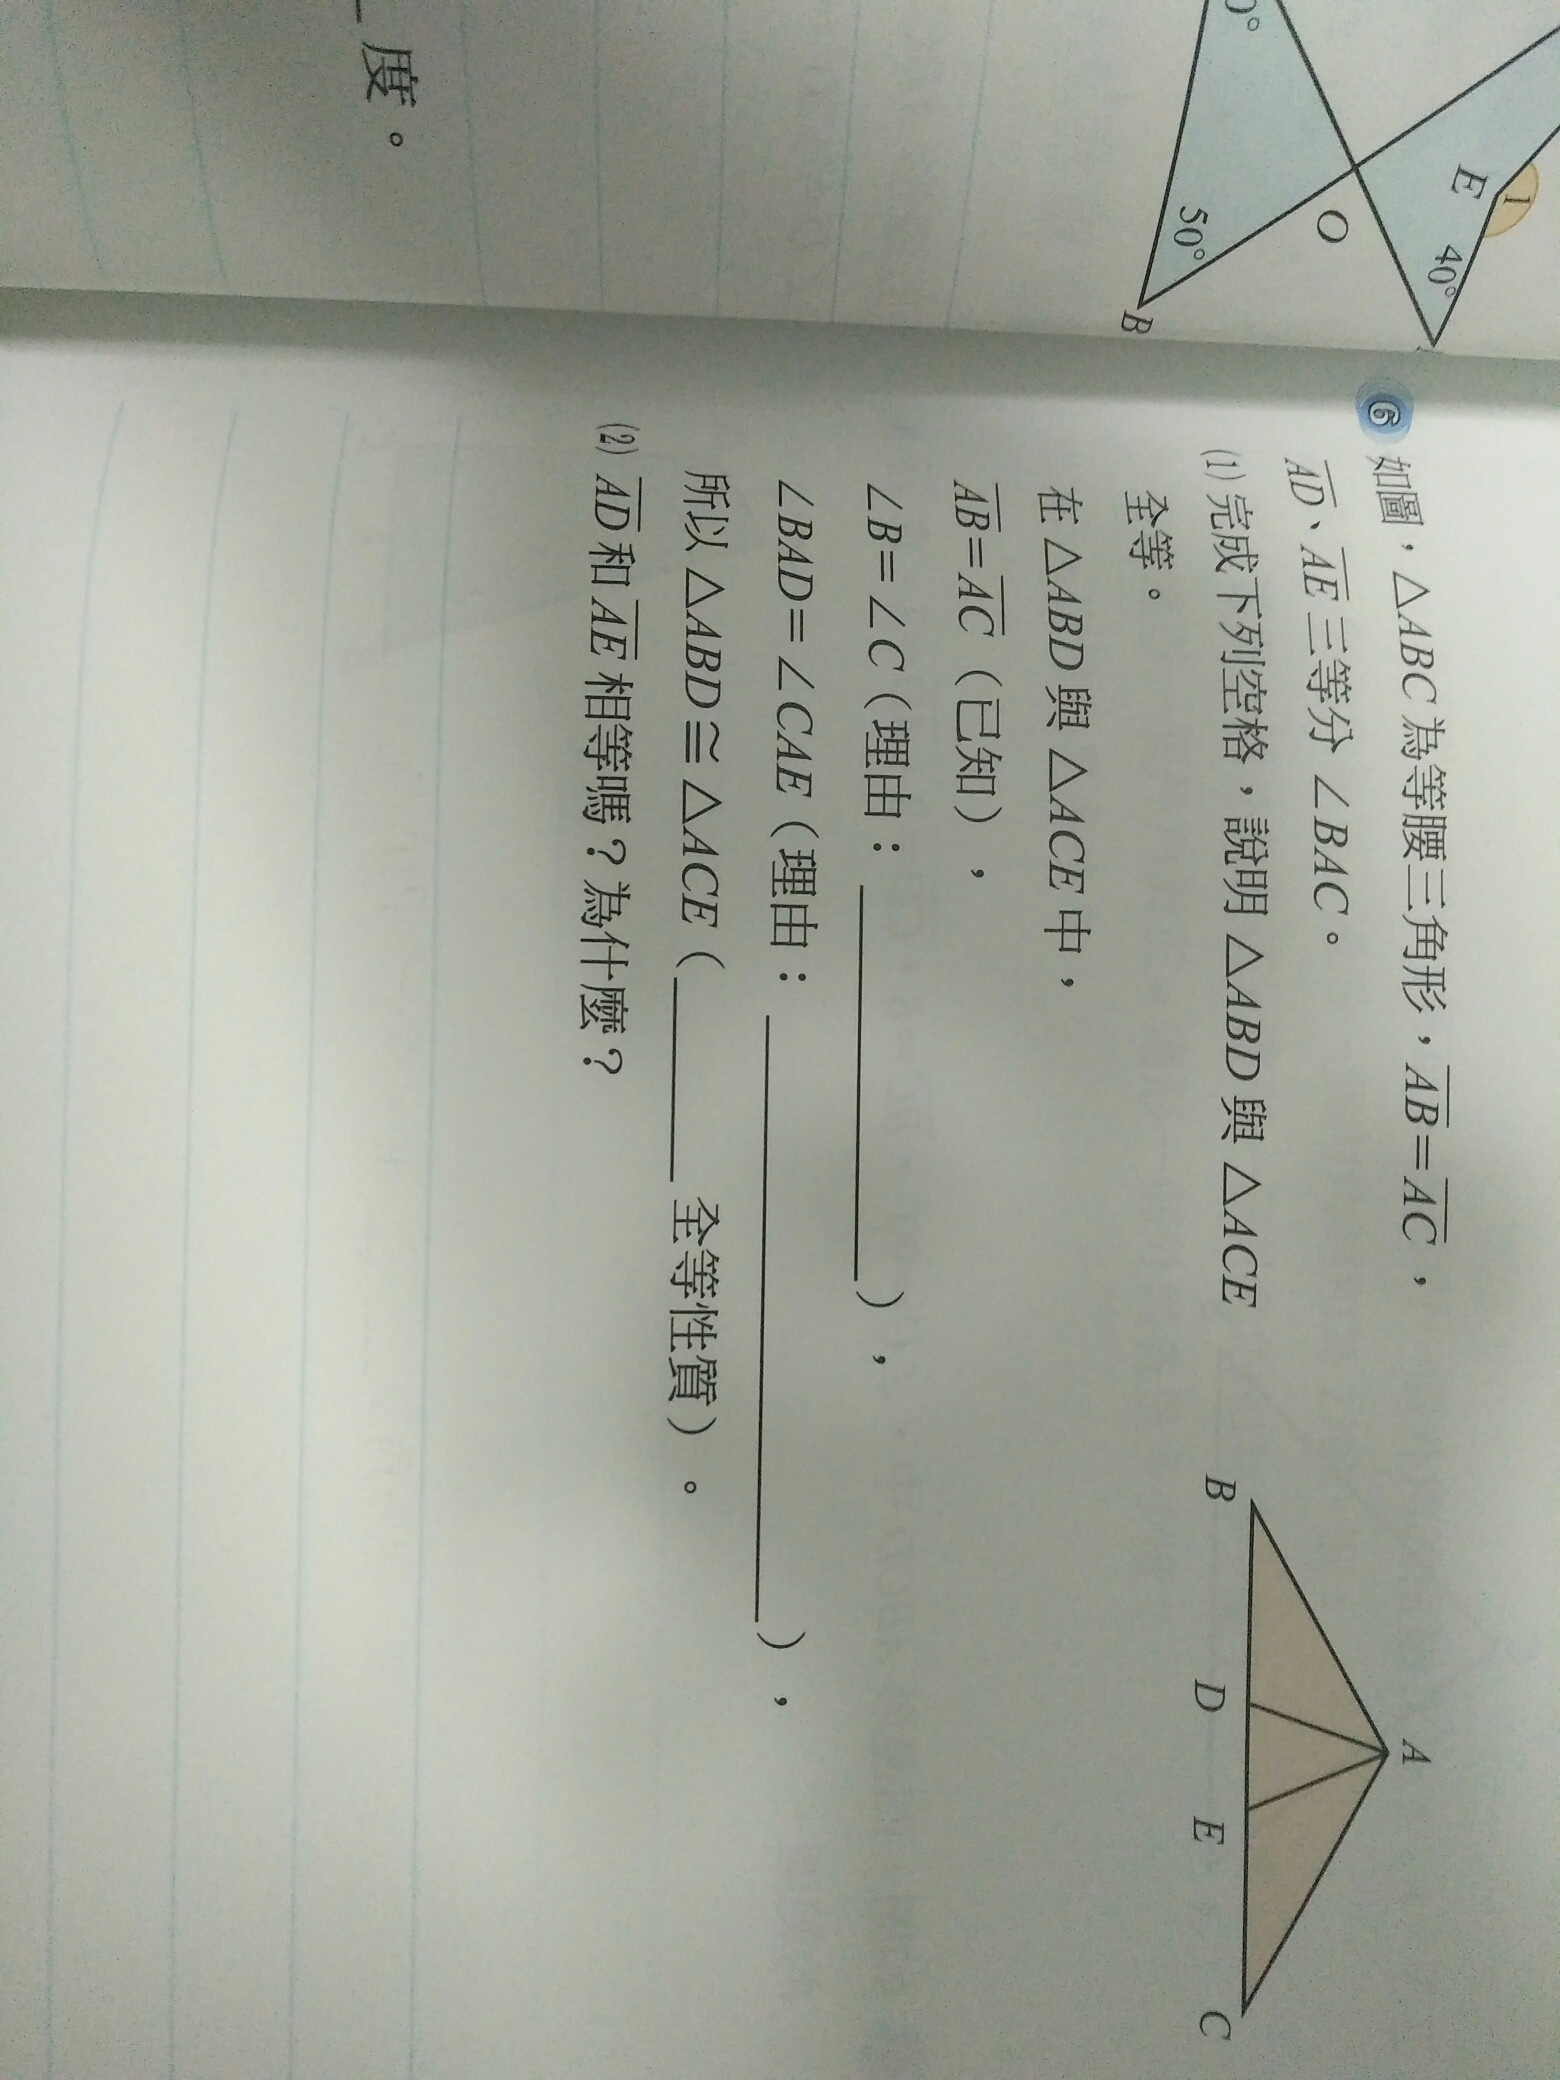 度。
0°
50°
B
O
E
1
40°
6 如圖，△ABC 為等腰三角形，AB=AC，
AD、AE 三等分 ∠BAC。
(1) 完成下列空格，說明 △ABD 與 △ACE
全等。
在 △ABD 與 △ACE 中，
AB=AC（已知），
∠B=∠C（理由：＿＿＿＿＿＿），
∠BAD=∠CAE（理由：＿＿＿＿＿＿＿＿），
所以 △ABD≅△ACE（＿＿＿全等性質）。
(2) AD 和 AE 相等嗎？為什麼？
A
B
D
E
C